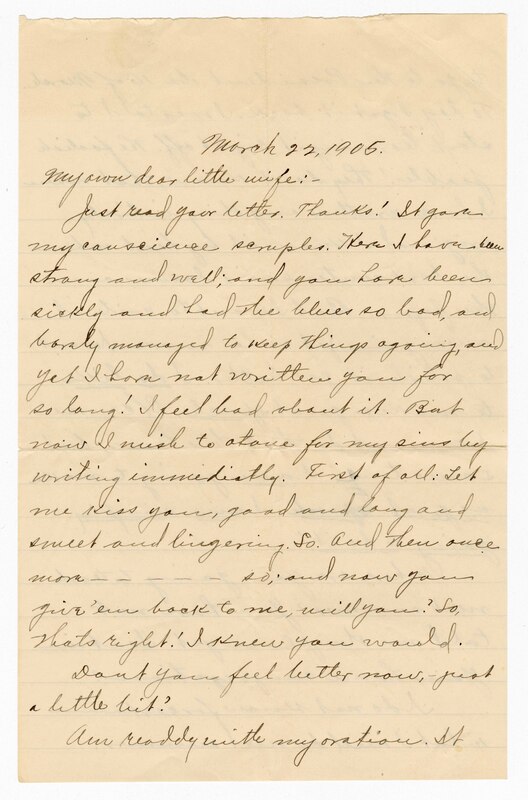 March 22, 1905.
My own dear little wife:-
Just read your letter. Thanks! It gave
my conscience scruples. Here I have been
strong and well; and you have been
sickly and had the blues so bad, and
barely managed to keep things agoing, and
yet I have not written you for
so long! I feel bad about it. But
now I wish to atone for my sins by
writing immediatly. First of all: Let
me kiss you, good and long and
sweet and lingering. So. And then once
more — — — — — so; and now you
give 'em back to me, will you? So,
thats right! I knew you would.
Dont you feel better now, - just
a little bit?
Am readdy with my oration. It